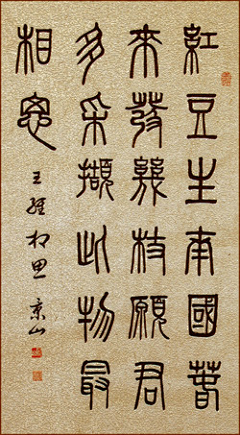 紅豆生南國春
來發幾枝願君
多采擷此物最
相思
王維相思 京山